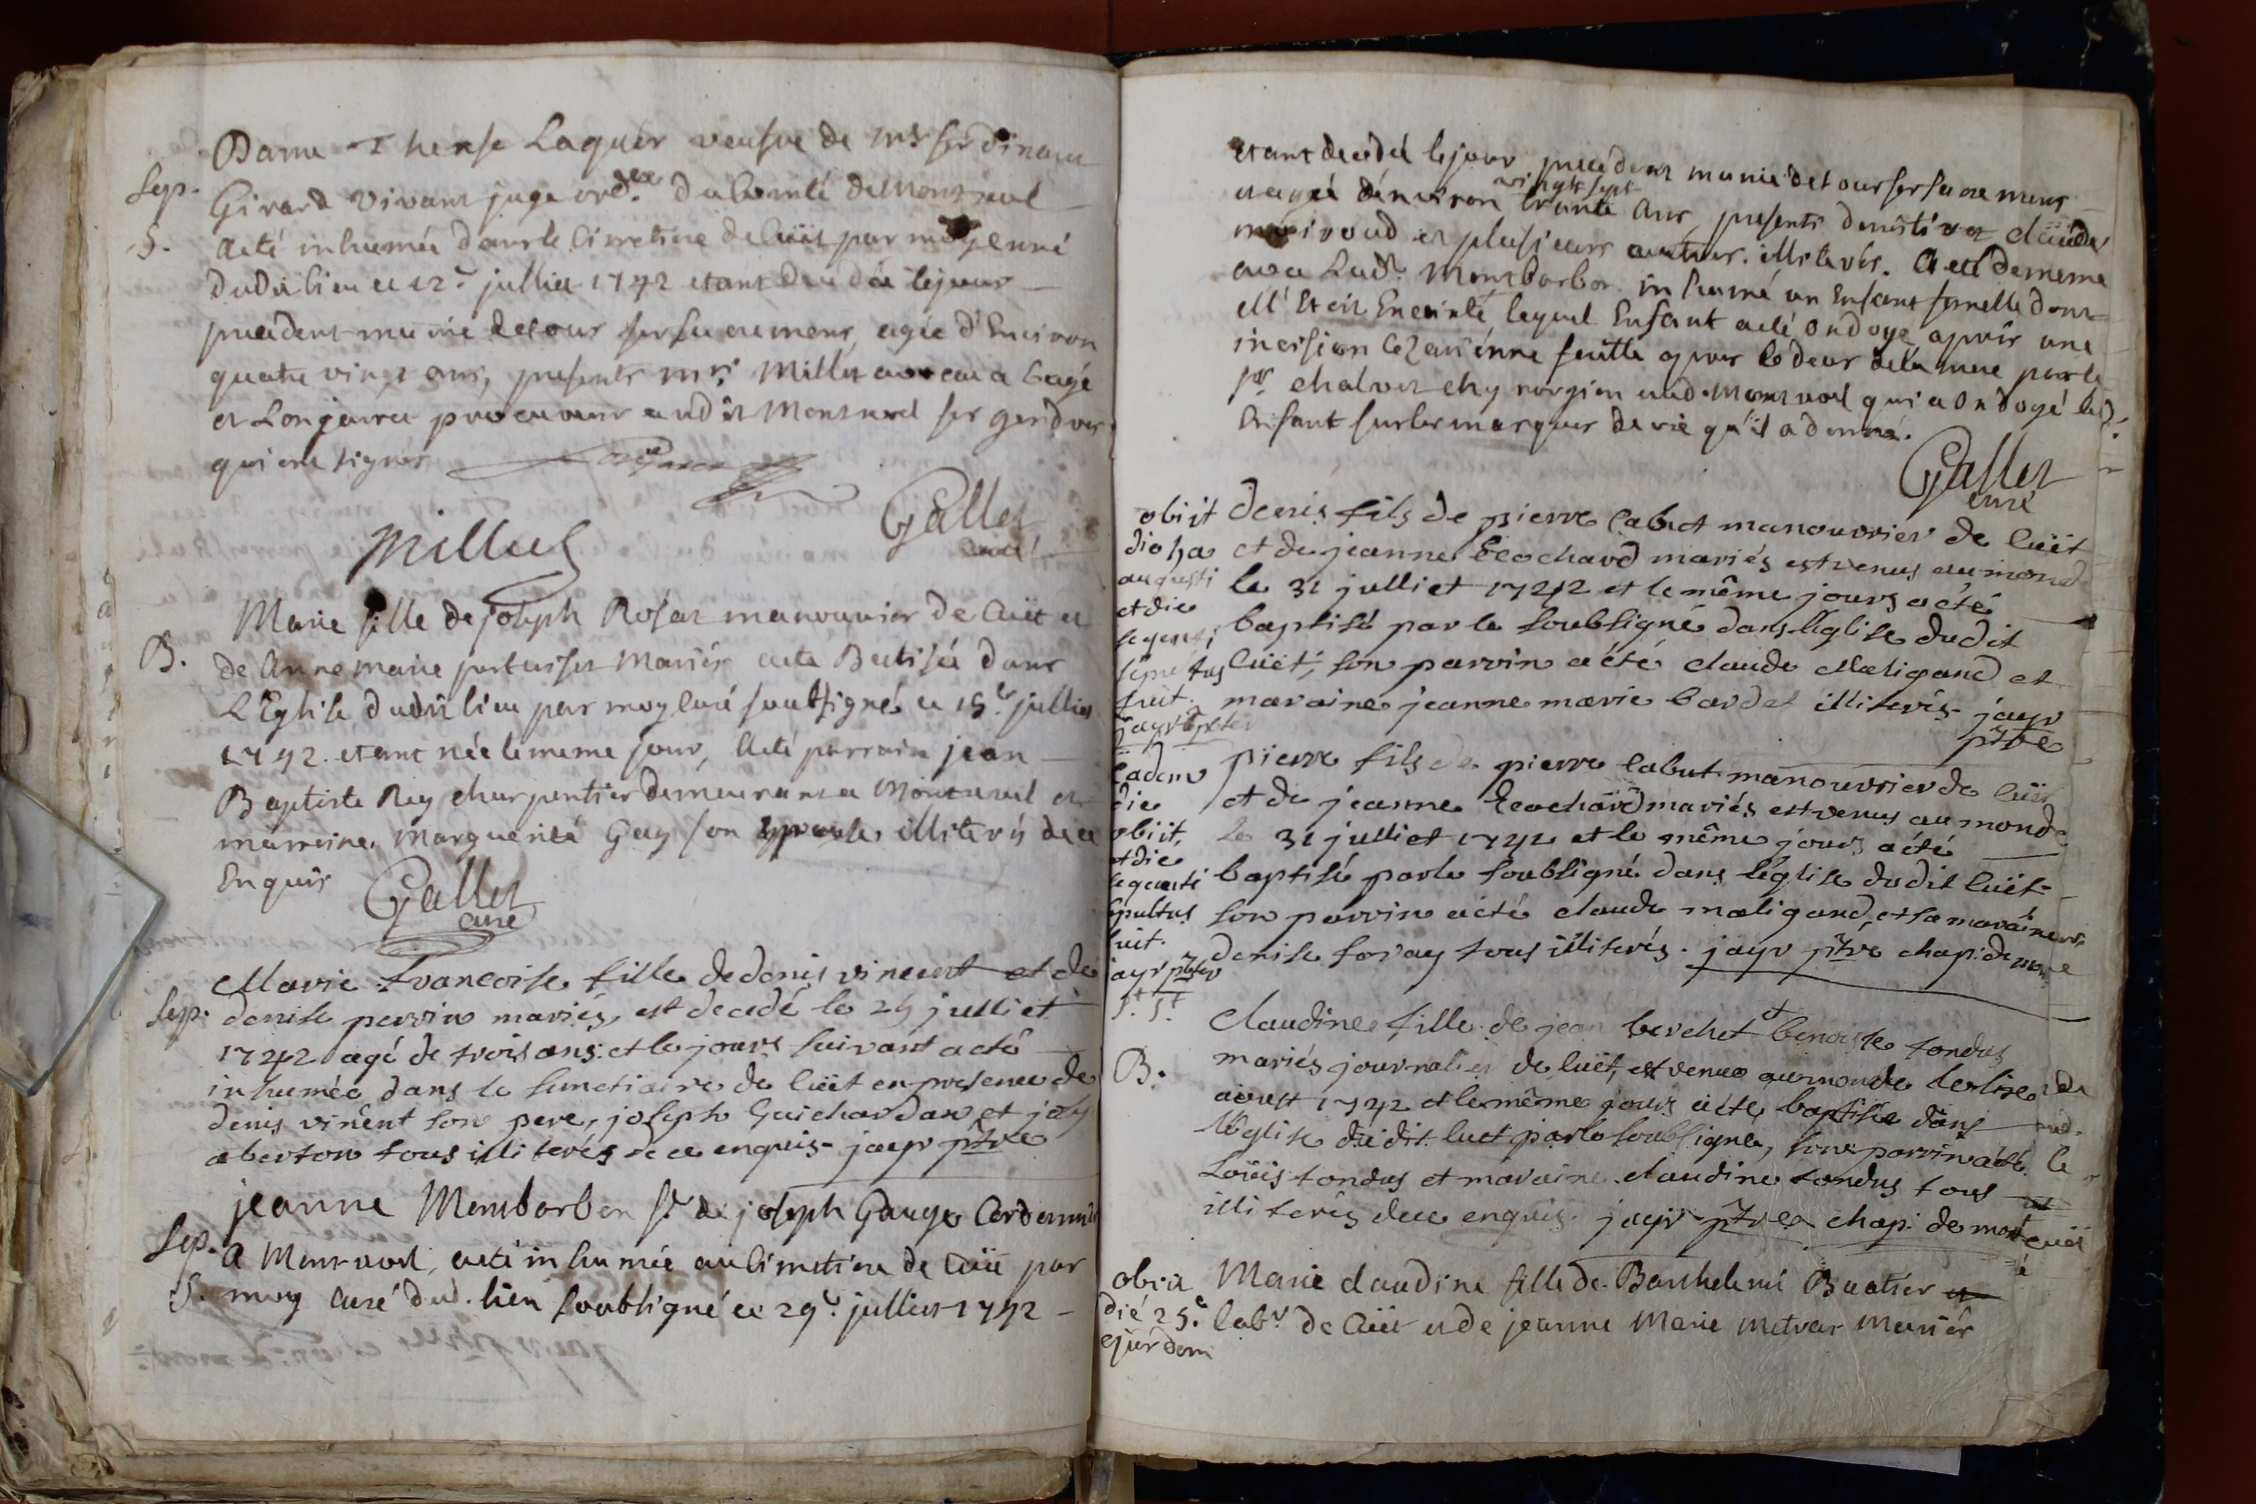 Dame Therese Laquer veufve de mr ferdinant
Sep. Girard vivant juge ordre du Comté de Montreal
S. a été inhumée dans le Cimetiere de Cuët par moy curé
dudit lieu ce 12e julliet 1742 etant decedée le jour
precedent munie de tous ses sacremens, agée d'Environ
quatre vingt ans, presents mrs Millet avocat a bagé
et Longeurca procureur audit Montreval ses gendres
qui ont signés
Millet
Gallet
curé
Marie fille de joseph Rosat manouvrier de Cuët et
B. de anne marie mariés a été Batisée dans
L'Eglise dudit lieu par moy curé soubsigné ce 15e julliet
1742. etant née le meme jour, a été parrain jean
Baptiste Rey charpentier demeurant a Montreval et
marraine, Marguerite Guy son epouse illiterés de ce
Enquis
Gallet
curé
Marie francoise fille de denis vincent et de
Sep. denise perrin mariés, est decedé le 25 julliet
1742 agé de trois ans: et le jours suivant a été
inhumée dans le de Cuët en presence de
denis vincent son pere, joseph Guichardan et
aberton tous illiterés de ce enquis - jayr ptre
jeanne Montbarbon fe de joseph Gauge Cordonnié
Sep. a Montreval, a été inhumée au Cimetiere de Cuët par
S. moy curé dud. lieu soubsigné ce 29e julliet 1742
etant decedée le jour precedent munie de tous ses sacremens
et agée d'environ vingt sept trente ans presents et claude
et plusieurs autres illiterés. a eté de meme
avec Lade Montbarbon inhumé un Enfant femelle dont
ell' Etoit Enceinte lequel Enfant a été ondoyé après une
incision Cezarienne faitte apres le deces de la mere par le
sr chalvet chyrorgien aud. Montrevel qui a ondoyé led.
enfant sur les marques de vie qu'il a donné.
Gallet
curé
obiit denis fils de pierre Cabut manouvrier de Cuët
die et de jeanne brochard mariés est venus au mond
augusti le 31 julliet 1742 et le même jours a été
et die baptisé par le soubsigné dans l'Eglise dudit
sequenti Cuët, son parrin a été claude Maligand et
sepultus maraine jeanne marie bardet illiterés - jayr
fuit. ptre
jayr
Eadem pierre fils de pierre Cabut manouvrier de Cuët
die et de jeanne brochard mariés est venus au monde
obiit, le 31 julliet 1742 et le même jours a été
et die baptisé par le soubsigné dans l'église dudit Cuët
sequenti son parrin a été claude maligand, et sa maraine
sepultus denise foray tous illiterés. jayr ptre chap: de
fuit.
jayr
Claudine fille de jean berchet et benoiste tondus
B. mariés journalier de Cuët, est venue au monde
aoust 1742 et le même jours a été baptisée dans
l'Eglise dudit Cuet par le soubsigné, son parrin a été
Loüis tondus et maraine claudine tondus tous
illiterés de ce enquis. jayr ptre chap: de
obiit Marie claudine fille de Barthelemi Buatier
die 25e labr de Cuët et de jeanne Marie mariés
ejusdem